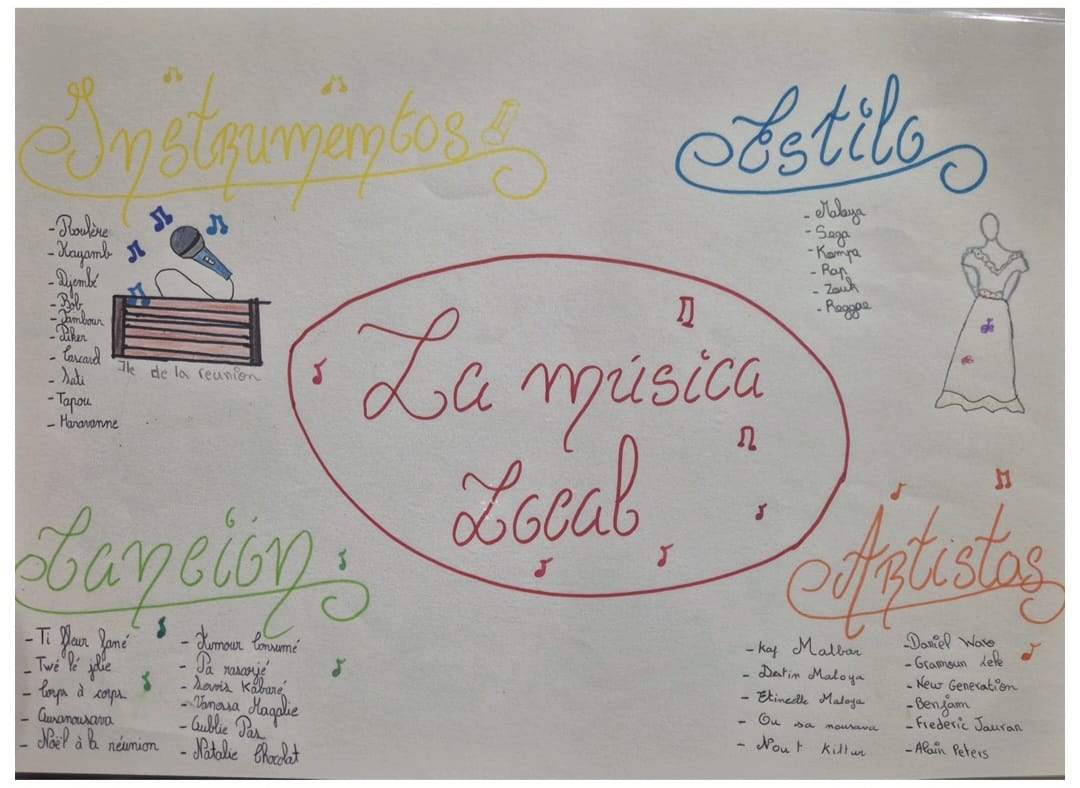 Instrumentos
- Roulère
- Kayamb
- Djembé
- Bob
- Tambour
- Piker
- Cascard
- Sati
- Tapou
- Maravanne
Ile de la reunion
Estilo
- Maloya
- Sega
- Kompa
- Rap
- Zouk
- Reggae
La música
Local
Canción
- Ti fleur fané
- Twé lé jolie
- Corps à corps
- Ousanousava
- Noël à la réunion
- Humour Consumé
- Pa rasoujé
- Servis Kabaré
- Vanessa Magalie
- Oublie Pas
- Natalie Chocolat
Artistas
- Kaf Malbar
- Destin Maloya
- Etincelle Maloya
- Ou sa nousava
- Nou t Kiltur
- Daniel Waro
- Gramoun Lele
- New Generation
- Benjam
- Frederic Jauran
- Alain Peters